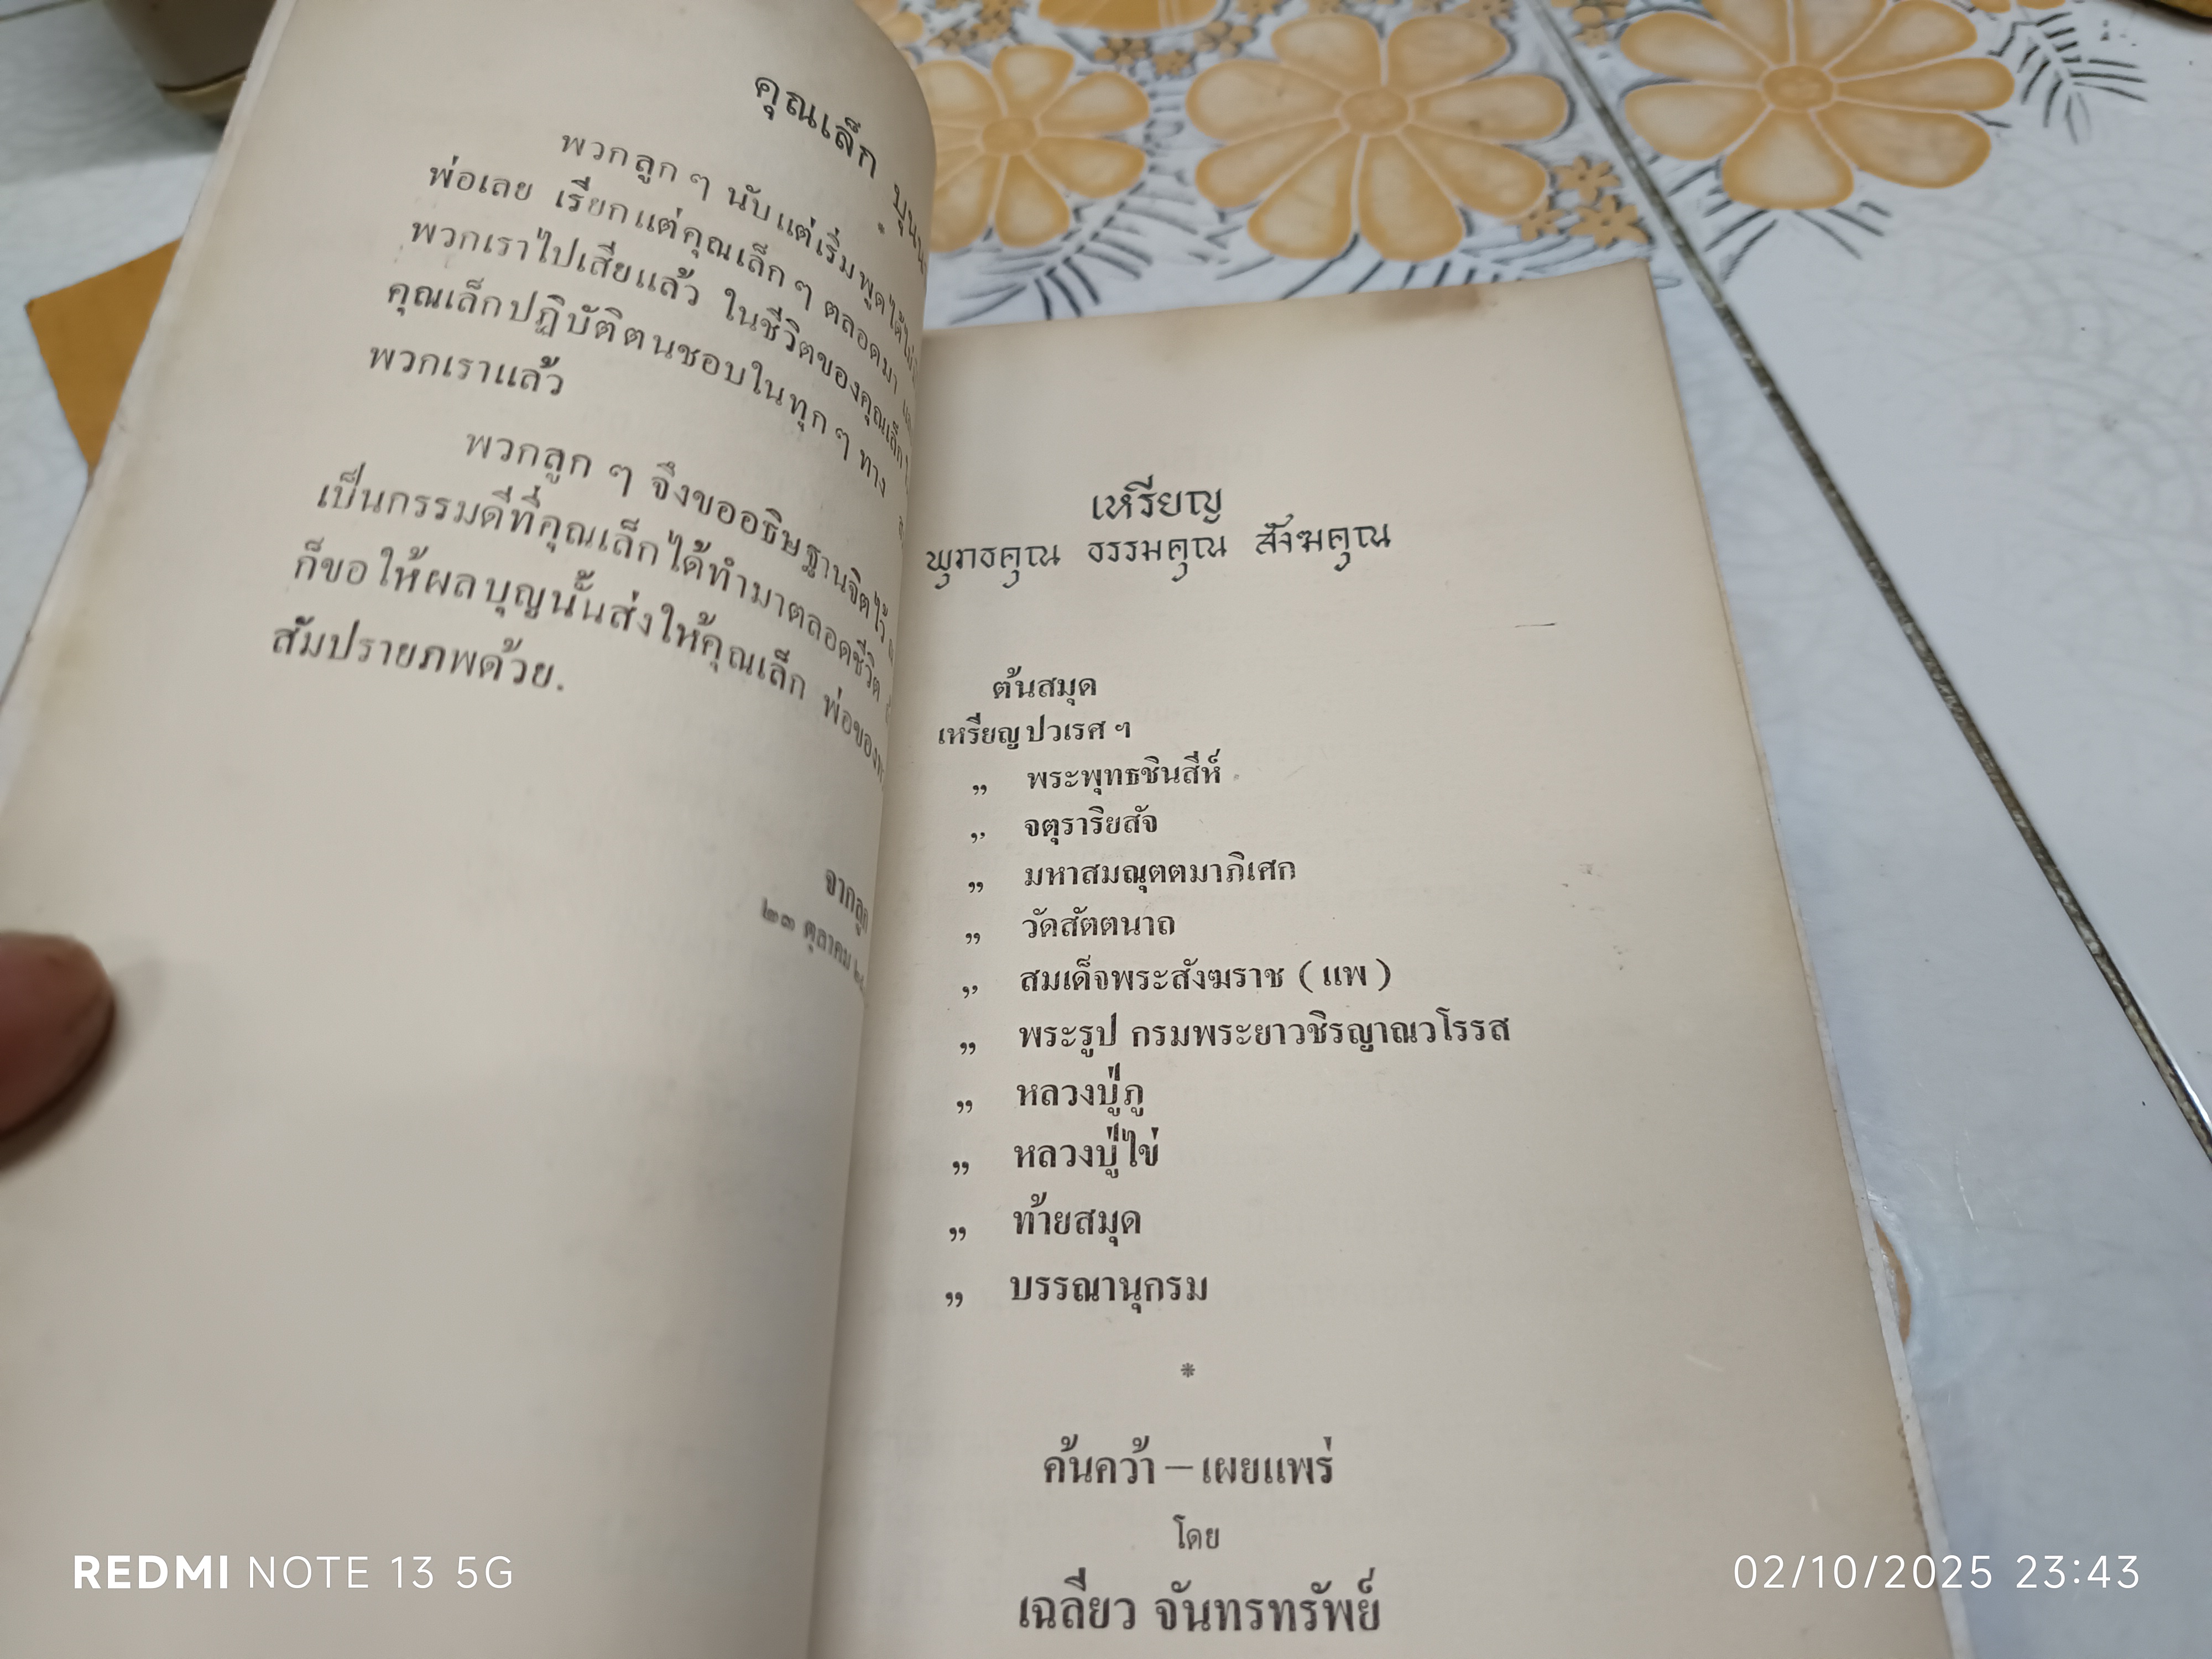 คุณเล็ก
พวกลูก ๆ นับแต่เริ่มพูดได้
พ่อเลย เรียกแต่คุณเล็ก ๆ ตลอดมา
พวกเราไปเสียแล้ว ในชีวิตของคุณเล็ก
คุณเล็กปฏิบัติตนชอบในทุก ๆ ทาง
พวกเราแล้ว
พวกลูก ๆ จึงขออธิษฐานจิตไว้
เป็นกรรมดีที่คุณเล็กได้ทำมาตลอดชีวิต
ก็ขอให้ผลบุญนั้นส่งให้คุณเล็ก พ่อของ
สัมปรายภพด้วย.
จากลูก
๒๓ ตุลาคม
เหรียญ
พุทธคุณ ธรรมคุณ สังฆคุณ
ต้นสมุด
เหรียญปวเรศ ฯ
„ พระพุทธชินสีห์
„ จตุราริยสัจ
„ มหาสมณุตตมาภิเศก
„ วัดสัตตนาถ
„ สมเด็จพระสังฆราช ( แพ )
„ พระรูป กรมพระยาวชิรญาณวโรรส
„ หลวงปู่ภู
„ หลวงปู่ไข่
„ ท้ายสมุด
„ บรรณานุกรม
*
ค้นคว้า – เผยแพร่
โดย
เฉลียว จันทรทรัพย์
REDMI NOTE 13 5G
02/10/2025 23:43